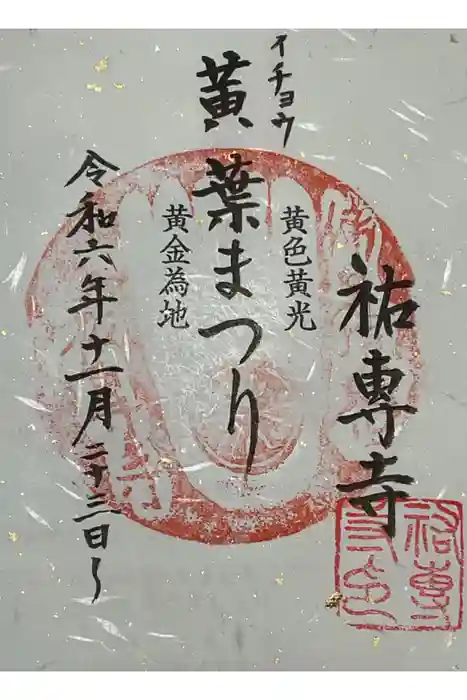 祐専寺
黄色黄光
イチョウ
黄葉まつり
黄金為地
令和六年十一月二十三日〜